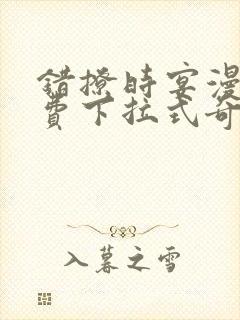 错撩时宴漫
费下拉式奇
入暮之雪